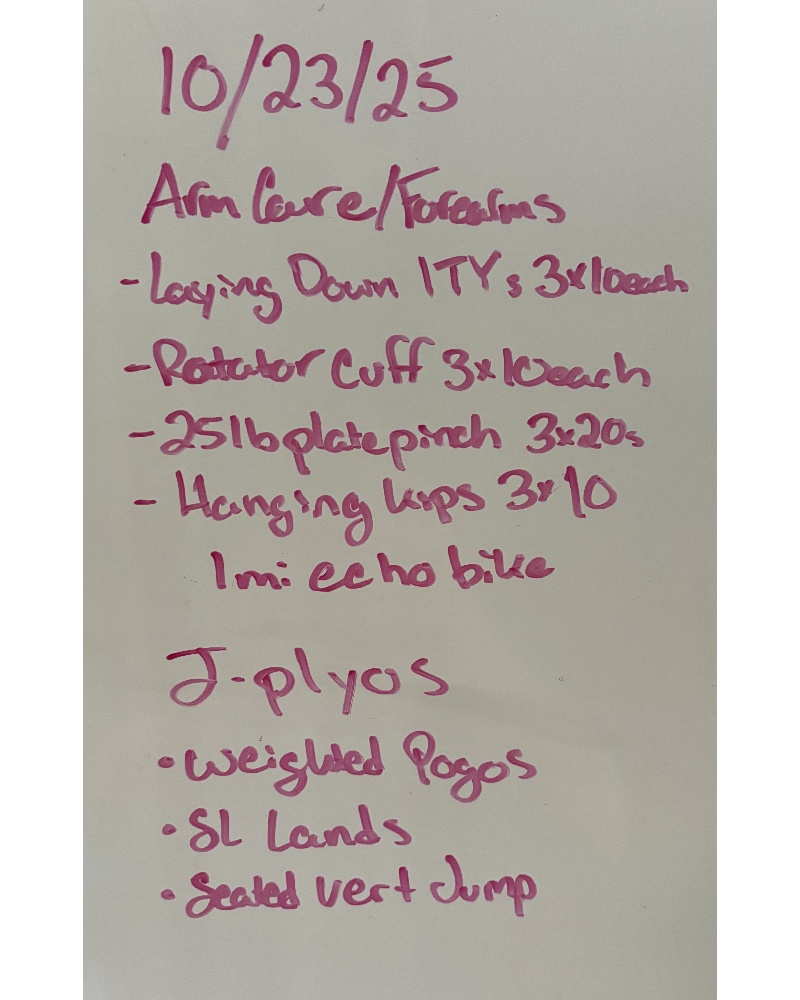 10/23/25
Arm Care/Forearms
- Laying Down ITYs 3x10each
- Rotator Cuff 3x10each
- 25lb plate pinch 3x20s
- Hanging kips 3x10
1mi echo bike
J-plyos
• Weighted Pogos
• SL Lands
• Seated Vert Jump